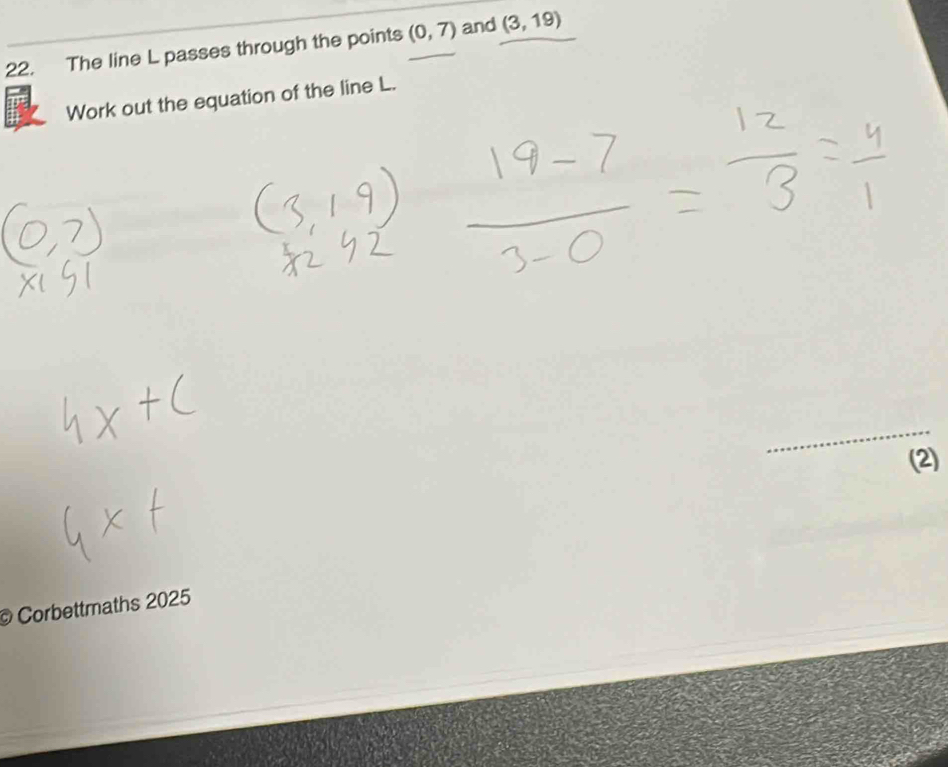 22. The line L passes through the points (0, 7) and (3, 19)
Work out the equation of the line L.
(0,7)
x1 y1
(3,19)
x2 y2
19-7
3-0
= 12
3
= 4
1
4x+c
(2)
4x+
© Corbettmaths 2025